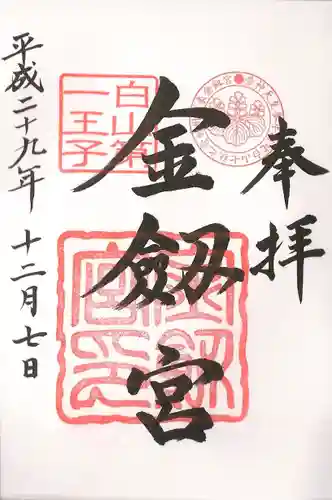 奉拝
金劔宮
白山第
一王子
平成二十九年 十二月七日